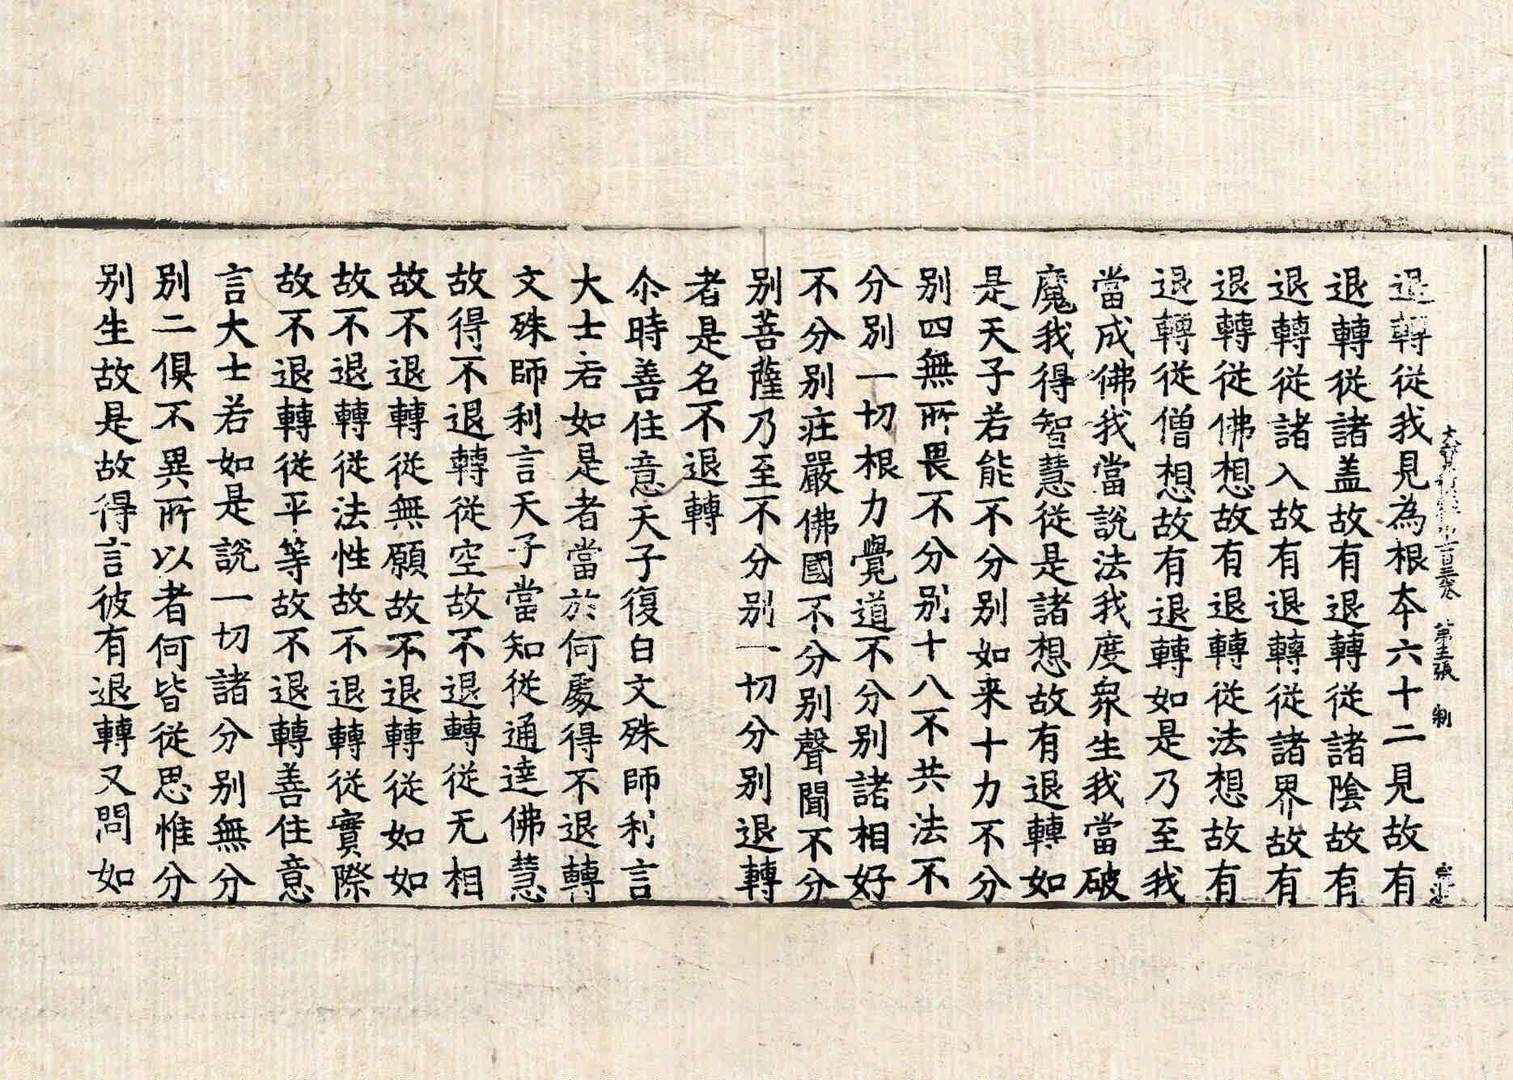 退轉從我見為根夲六十二見故有
退轉從諸盖故有退轉從諸陰故有
退轉從諸入故有退轉從諸界故有
退轉從佛想故有退轉從法想故有
退轉從僧想故有退轉如是乃至我
當成佛我當說法我度衆生我當破
魔我得智慧從是諸想故有退轉如
是天子若能不分別如来十力不分
別四無所畏不分別十八不共法不
分別一切根力覺道不分別諸相好
不分別莊嚴佛國不分別聲聞不分
別菩薩乃至不分別一切分別退轉
者是名不退轉
尒時善住意天子復白文殊師利言
大士若如是者當於何處得不退轉
文殊師利言天子當知從通達佛慧
故得不退轉從空故不退轉從无相
故不退轉從無願故不退轉從如如
故不退轉從法性故不退轉從實際
故不退轉從平等故不退轉善住意
言大士若如是說一切諸分別無分
別二俱不異所以者何皆從思惟分
別生故是故得言彼有退轉又問如